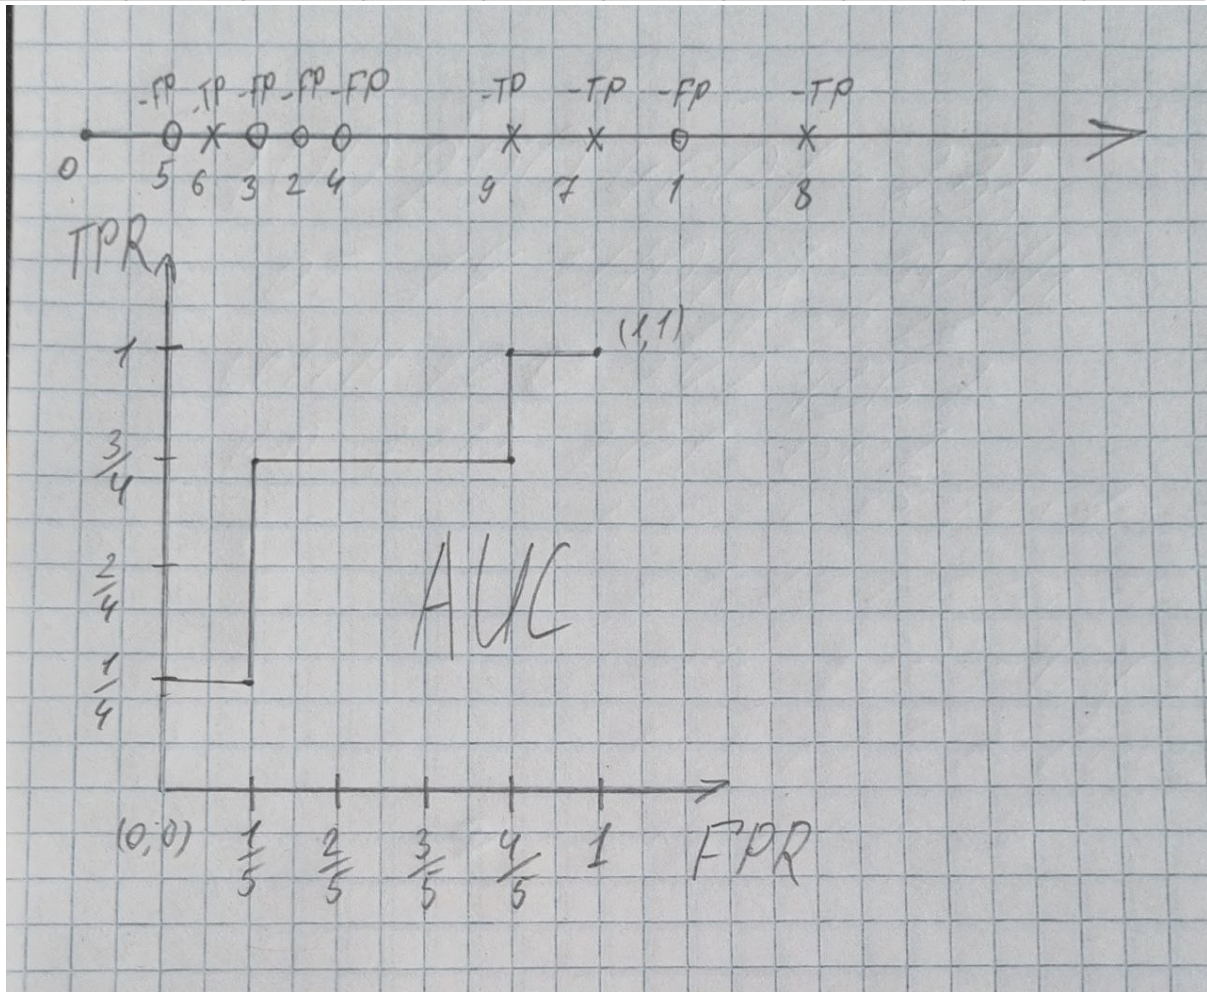 -FP -TP -FP -FP -FP -TP -TP -FP -TP
0 5 6 3 2 4 9 7 1 8
TPR
(1,1)
1
3/4
2/4
AUC
1/4
(0,0) 1/5 2/5 3/5 4/5 1 FPR